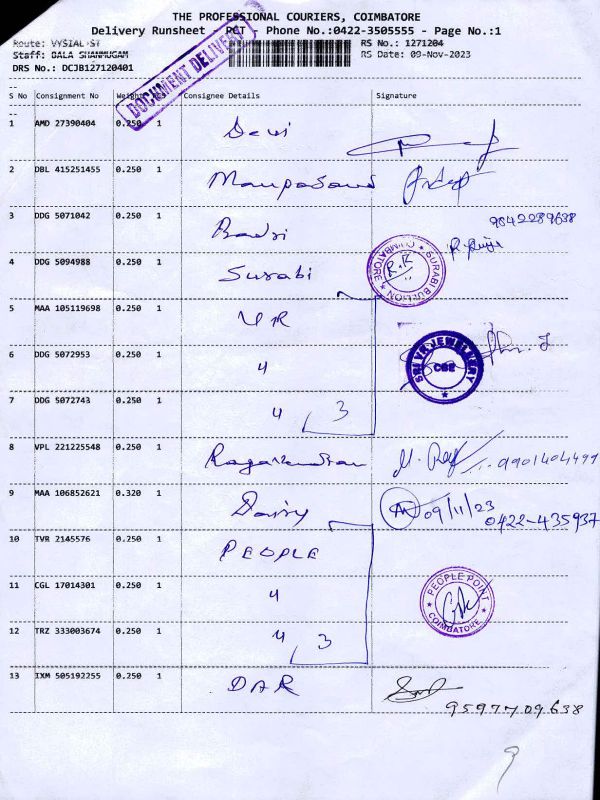 THE PROFESSIONAL COURIERS, COIMBATORE
Delivery Runsheet - PCT - Phone No.:0422-3505555 - Page No.:1
Route: VYSIAL ST RS No.: 1271204
Staff: BALA SHANMUGAM RS Date: 09-Nov-2023
DRS No.: DCJB127120401
DOCUMENT DELIVERY
S No Consignment No Weight PCS Consignee Details Signature
1 AMD 27390404 0.250 1 Devi
2 DBL 415251455 0.250 1
3 DDG 5071042 0.250 1 Badri 9842289638
4 DDG 5094988 0.250 1 Surabi R.R SURABI BULLION COIMBATORE
5 MAA 105119698 0.250 1 VR
6 DDG 5072953 0.250 1 " SRI VR JEWELLERY CBE
7 DDG 5072743 0.250 1 " 3
8 VPL 221225548 0.250 1 9901404499
9 MAA 106852621 0.320 1 09/11/23
0422-435937
10 TVR 2145576 0.250 1 PEOPLE
11 CGL 17014301 0.250 1 " PEOPLE POINT COIMBATORE
12 TRZ 333003674 0.250 1 " 3
13 IXM 505192255 0.250 1 DAR
9597709638